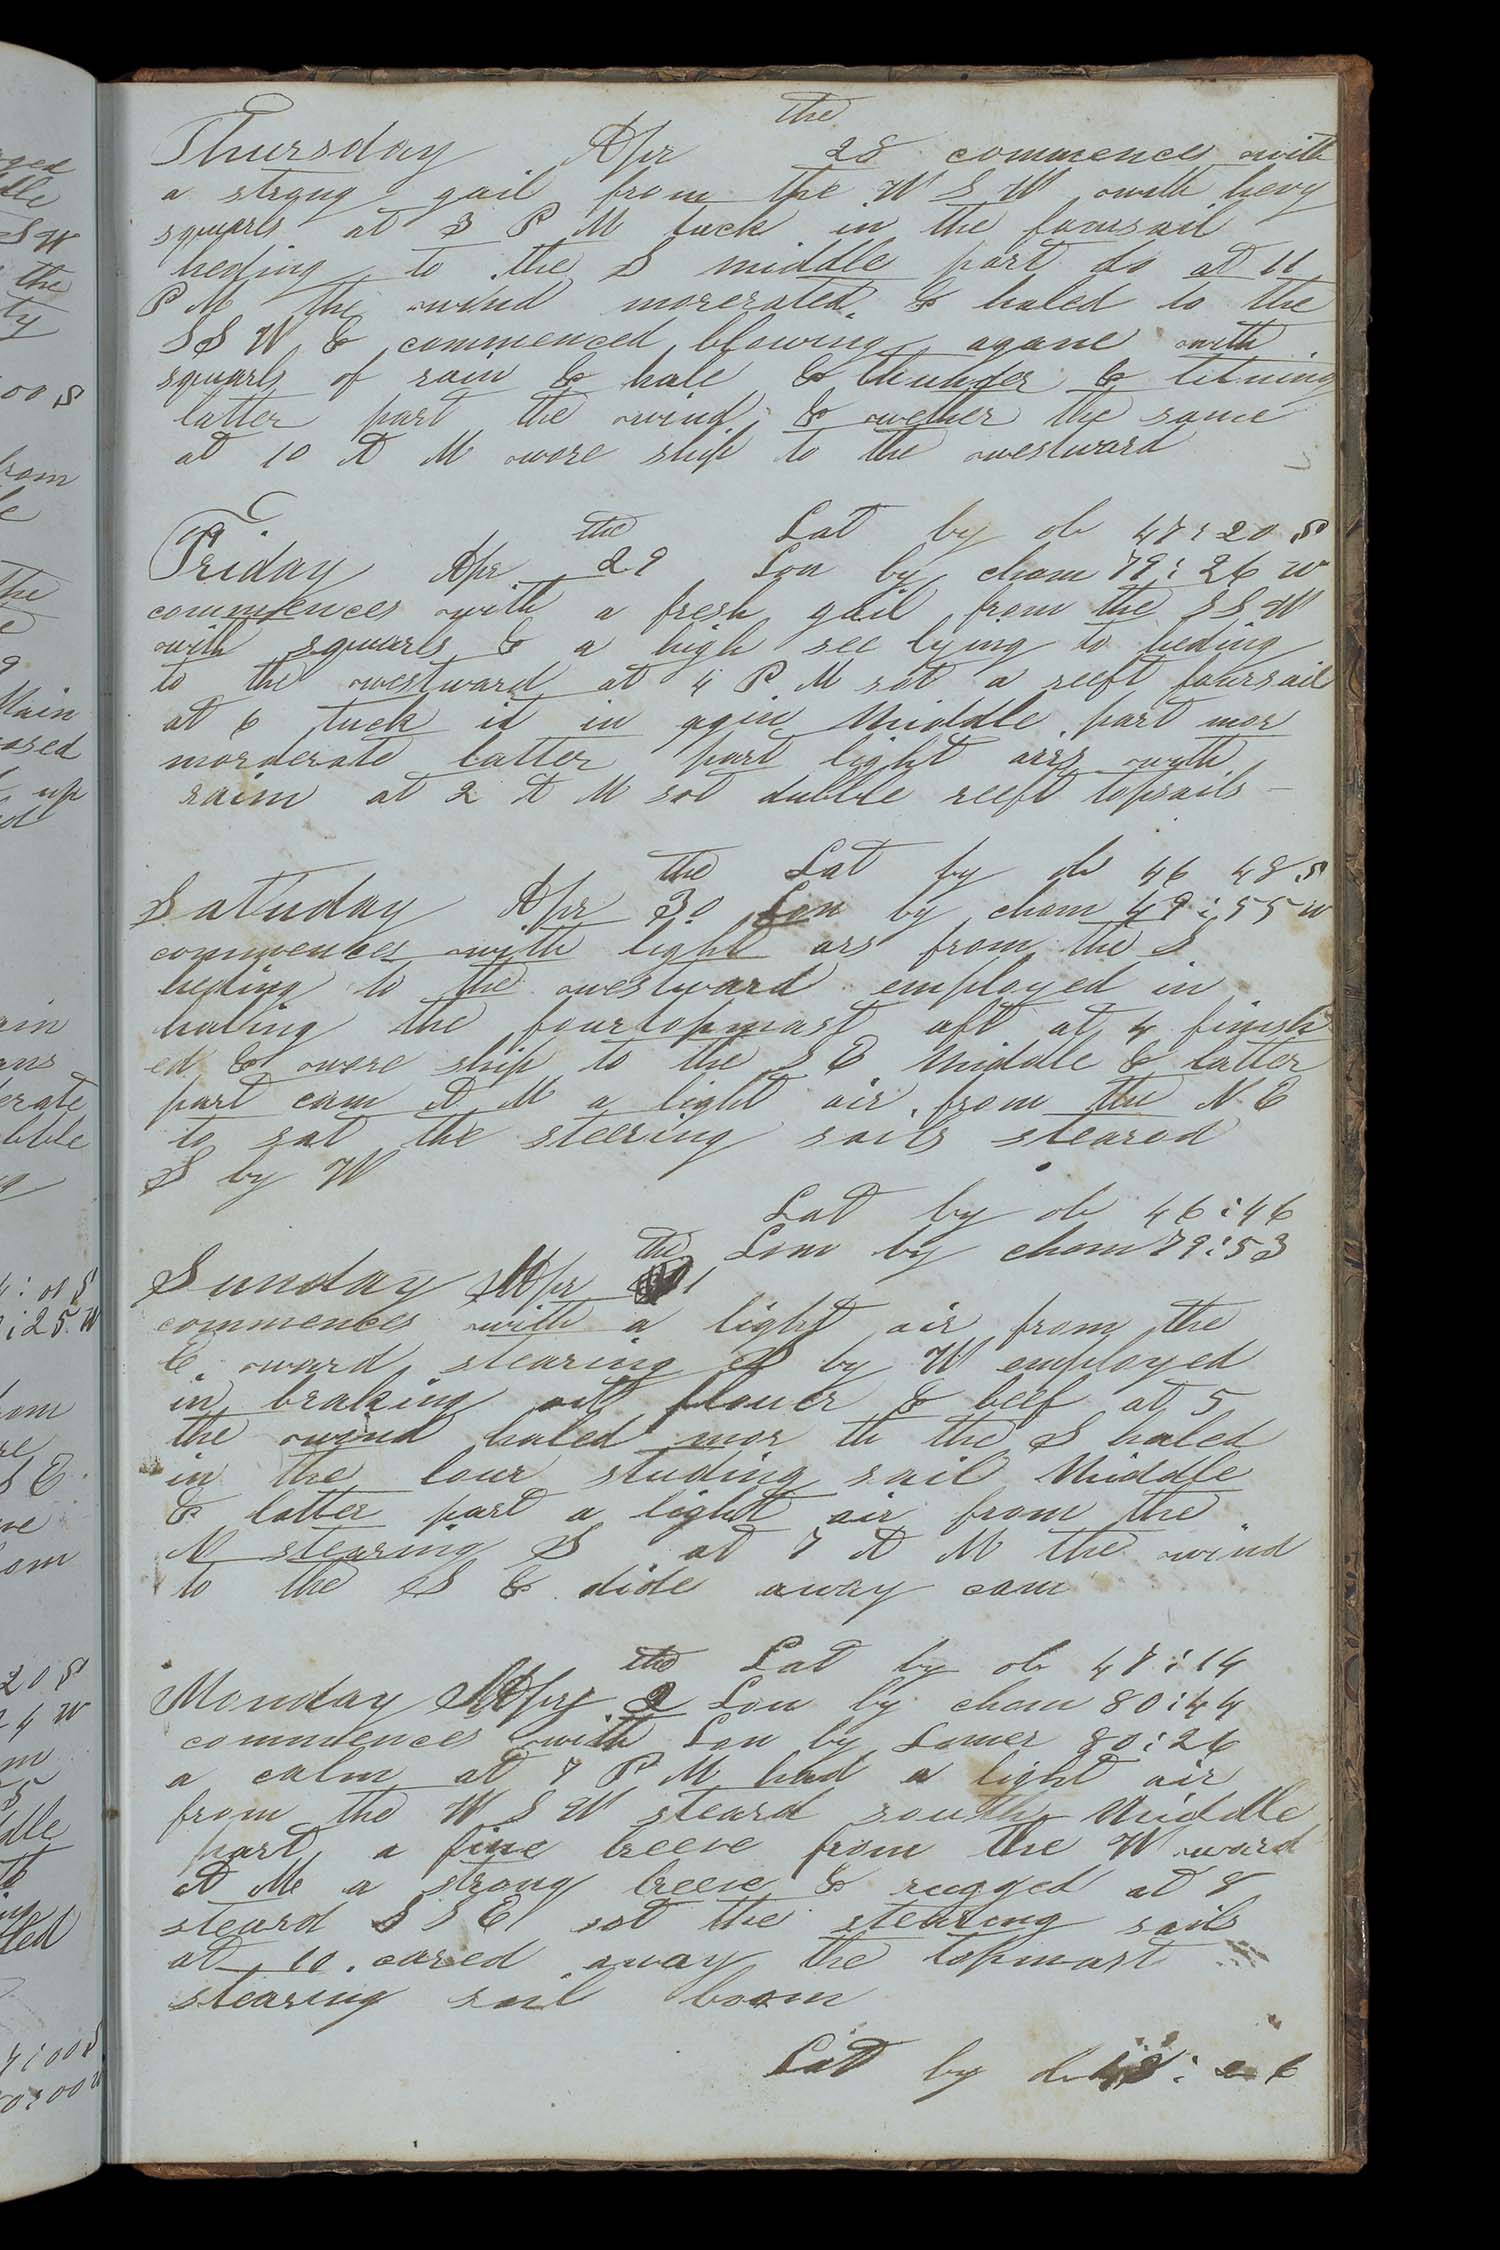 the
Thursday Apr 28 commences with
a strong gail from the W S W with hevy
squarls at 3 P M tuck in the foursail
heding to the S middle part do at 11
P M the wind morerated & haled to the
S S W & commenced blowing agane with
squarls of rain & hale & thunder & litning
latter part the wind & wether the same
at 10 A M wore ship to the westward
the Lat by ob 47:20 S
Friday Apr 29 Lon by chom 79:26 W
commences with a fresh gail from the S S W
with squarls & a high see lying to heding
to the westward at 4 P M sot a reeft foursail
at 6 tuck it in agin Middle part mor
morderate latter part light airs with
raim at 2 A M sot dubble reeft topsails
the Lat by ob 46 48 S
Satuday Apr 30 Lon by chom 79:55 W
commences with light ars from the S
heding to the westward employed in
haling the fourtopmast aft at 4 finish
ed & wore ship to the S E Middle & latter
part cam A M a light air from the N E
to sot the steering sails steared
S by W
Lat by ob 46:46
the Lon by chom 79:53
Sunday Apr 1
commences with a light air from the
E ward stearing S by W employed
in braking out flouer & beef at 5
the wind haled mor to the S haled
in the lour studing sail Middle
& latter part a light air from the
N stearing S at 7 A M the wind
to the S & dide away cam
the Lat by ob 47:14
Monday Apr 2 Lon by chom 80:44
commences with Lon by Lonier 80:26
a calm at 7 P M had a light air
from the W S W steard south Middle
part a fine breeve from the W ward
A M a strong breeve & rugged at 8
steard S S E sot the stearing sails
at 10 cared away the topmast
stearing sail boom
Lat by ob